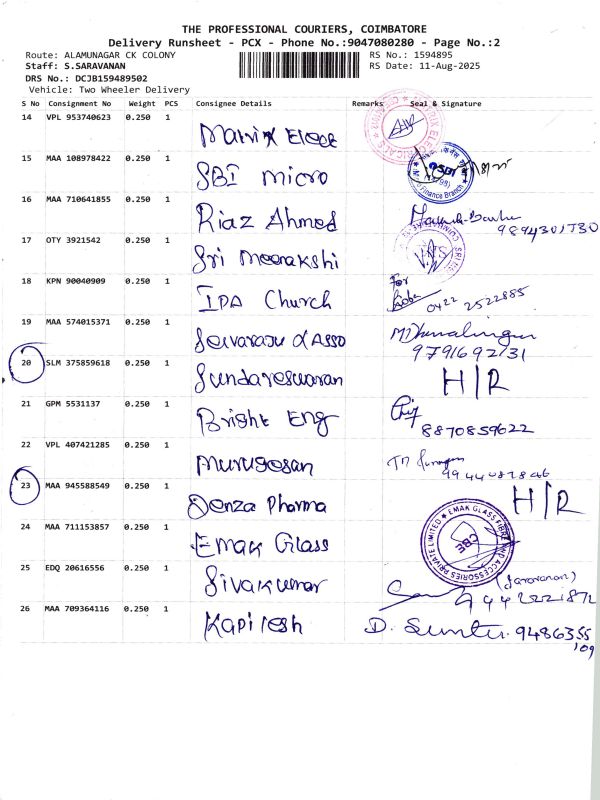 THE PROFESSIONAL COURIERS, COIMBATORE
Delivery Runsheet - PCX - Phone No.:9047080280 - Page No.:2
Route: ALAMUNAGAR CK COLONY
RS No.: 1594895
Staff: S.SARAVANAN
RS Date: 11-Aug-2025
DRS No.: DCJB159489502
Vehicle: Two Wheeler Delivery
S No Consignment No Weight PCS Consignee Details Remarks Seal & Signature
14 VPL 953740623 0.250 1 Matrix Elece
15 MAA 108978422 0.250 1 SBI micro
16 MAA 710641855 0.250 1 Riaz Ahmed
17 OTY 3921542 0.250 1 Sri Meenakshi
18 KPN 90040909 0.250 1 IPA Church For 0422 2522885
19 MAA 574015371 0.250 1 Selvaraju & ASSO 9791692131
20 SLM 375859618 0.250 1 Sundareswaran H/R
21 GPM 5531137 0.250 1 Bright Eng 8870859622
22 VPL 407421285 0.250 1 Murugesan
23 MAA 945588549 0.250 1 Denza Pharma H/R
24 MAA 711153857 0.250 1 Emak Glass EMAK GLASS FIBRE AND ACCESSORIES PRIVATE LIMITED CBE
25 EDQ 20616556 0.250 1 Sivakumar (Saravanan)
26 MAA 709364116 0.250 1 Kapilesh D. 9486355
109